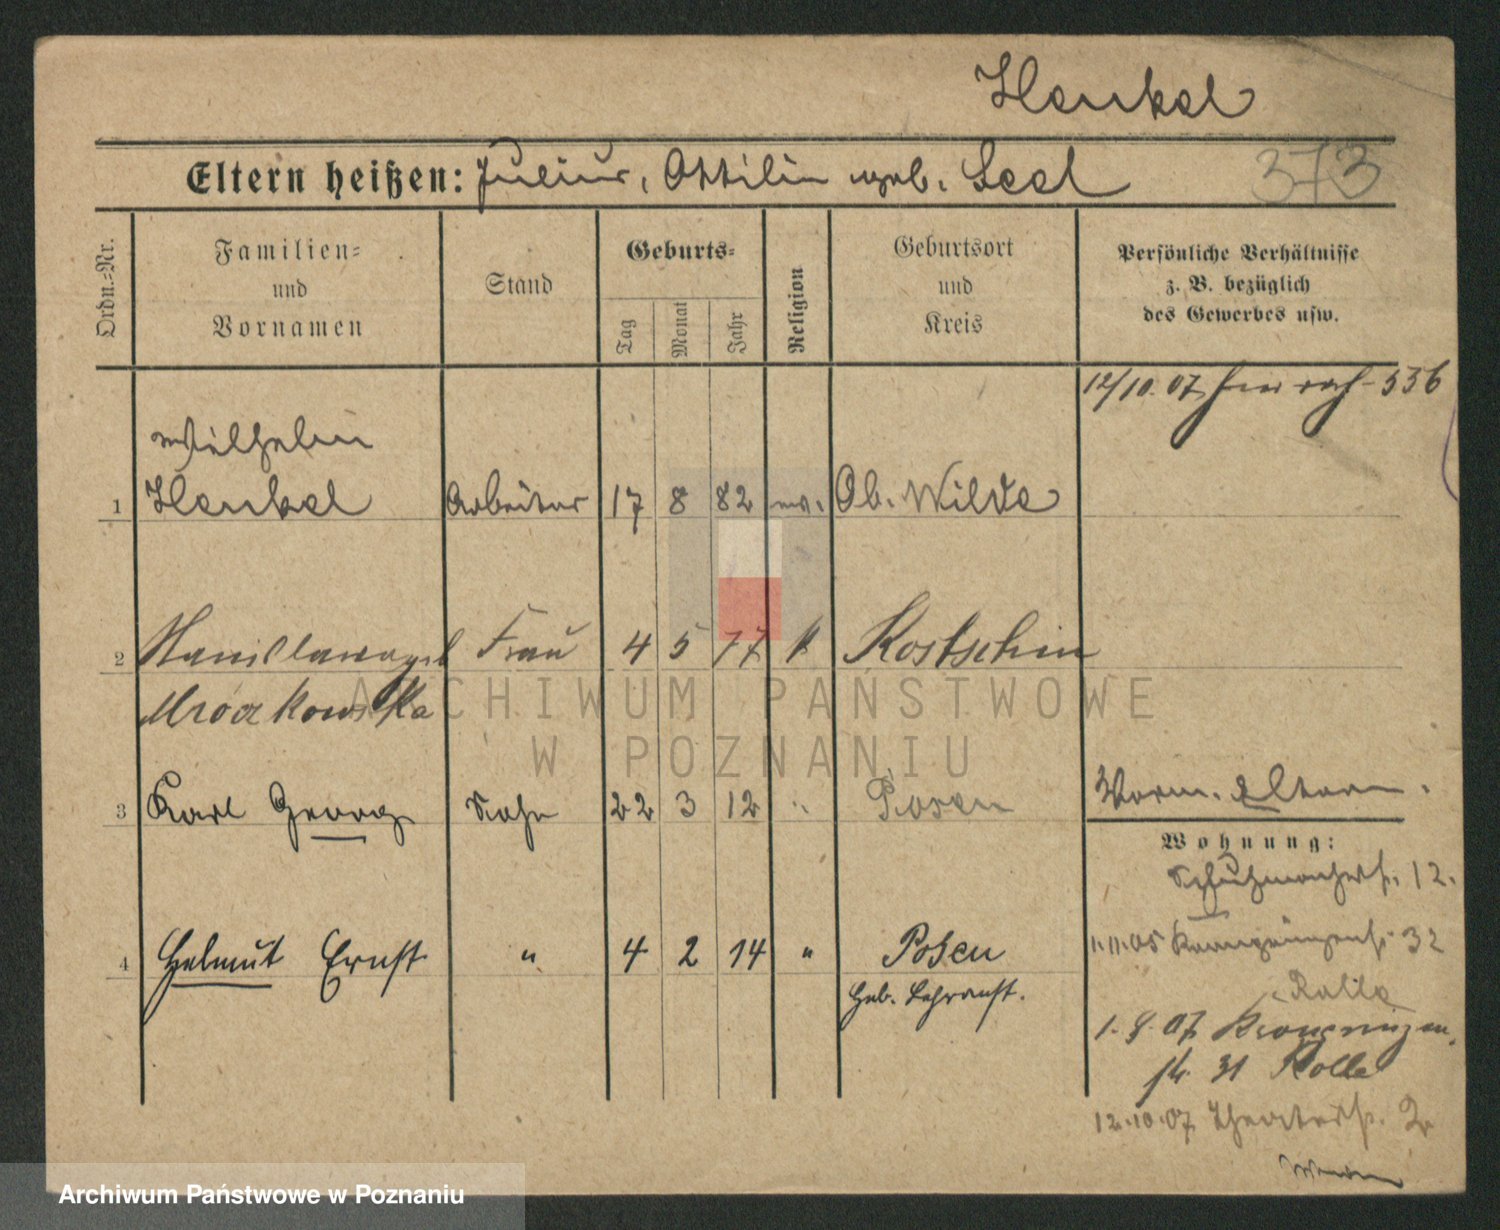 Henkel
Eltern heißen: Julius, Ottilie geb. Seel
373
Ordn.-Nr.
Familien-
und
Vornamen
Stand
Geburts-
Tag
Monat
Jahr
Religion
Geburtsort
und
Kreis
Persönliche Verhältnisse
z. B. bezüglich
des Gewerbes usw.
12/10.07 536
Wilhelm
1 Henkel Arbeiter 17 8 82 ev. Ob. Wilda
2 Stanislawa geb Frau 4 5 77 k Kostschin
Mroczkowska
3 Karl Georg Sohn 22 3 12 " Posen
Vorm. Eltern.
Wohnung:
Schuhmacherstr. 12.
4 Helmut Ernst " 4 2 14 " Posen
Heb. Lehranst.
1.11.05 32
1.9.07
str. 31
12.10.07 Theaterstr. 2
ARCHIWUM PAŃSTWOWE
W POZNANIU
Archiwum Państwowe w Poznaniu